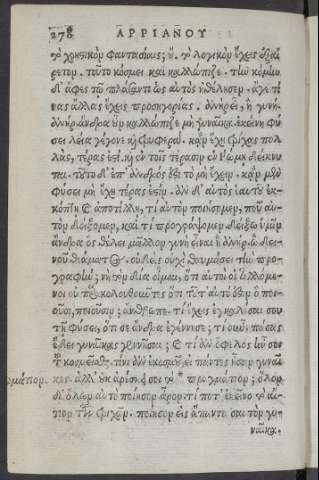 278 ΑΡΡΙΑΝΟΥ
τὸ χρηστικὸν φαντασίαις; οὔ. τὸ λογικὸν ἔχεις ἐξαί
ρετον. τοῦτο κόσμει καὶ καλλώπιζε. τὴν κόμην
δ' ἄφες τῷ πλάσαντι ὡς αὐτὸς ἠθέλησεν. ἄγε τί
νας ἄλλας ἔχεις προσηγορίας. ἀνὴρ εἶ, ἢ γυνή.
ἀνὴρ. ἄνδρα οὖν καλλώπιζε μὴ γυναῖκα. ἐκείνη φύ
σει λεία γέγονε καὶ τρυφερά. κἂν ἔχῃ τρίχας πολ
λὰς, τέρας ἐστὶ, καὶ ἐν τοῖς τέρασιν ἐν Ῥώμῃ δείκνυ
ται. τοῦτο δ' ἐπ' ἀνδρός ἐστι τὸ μὴ ἔχειν. κἂν μὲν
φύσει μὴ ἔχῃ τέρας ἐστὶν. ἂν δ' αὐτὸς ἑαυτοῦ ἐκ-
κόπτῃ καὶ ἀποτίλλῃ, τί αὐτὸν ποιήσομεν, ποῦ αὐ-
τὸν δείξομεν, καὶ τί προγράψομεν δείξω ὑμῖν
ἄνδρα ὃς θέλει μᾶλλον γυνὴ εἶναι ἢ ἀνὴρ. ὢ δει-
νοῦ θεάματος. οὐδεὶς οὐχὶ θαυμάσει τὴν προ-
γραφήν; νὴ τὸν δία οἶμαι, ὅτι αὐτοὶ οἱ τιλλόμε-
νοι οὐ παρακολουθοῦντες ὅτι τοῦτ' αὐτό ἐστιν ὃ ποι-
οῦσι, ποιοῦσιν; ἄνθρωπε. τί ἔχεις ἐγκαλέσαι σου
τῇ φύσει, ὅτι σε ἄνδρα ἐγέννησε; τί οὖν, πάσας
ἔδει γυναῖκας γεννῆσαι; καὶ τί ἂν ὄφελος ἦν σοι
τοῦ κοσμεῖσθαι. τίνι ἂν ἐκοσμοῦ εἰ πάντες ἦσαν γυναῖ
κες. ἀλλ' οὐκ ἀρέσκει σοι τὸ πραγμάτιον; ὅλον
δι' ὅλων αὐτὸ ποίησον ἆρον. τί ποτ' ἐκεῖνο τὸ αἴ-
τιον τῶν τριχῶν. ποίησον εἰς ἅπαντα σαυτὸν γυ-
ναῖκα.